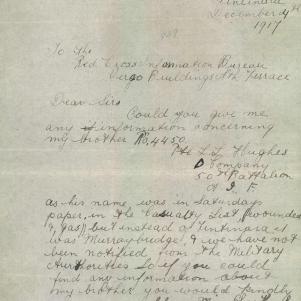 Tintinara
December 4th
1917
To the
Red Cross Information Bureau
Verco Buildings Nth Terrace
Dear Sirs
Could you give me
any information concerning
my brother No. 4450
Pte L. L. Hughes
D Company
50th Battalion
A. I. F
as his name, was in Saturdays
paper, in the Casualty List (Wounded
& gas) but instead of Tintinara it
was Murraybridge, & we have not
been notified from the Military
Authorities so if you could
find any information about
my brother you would kindly